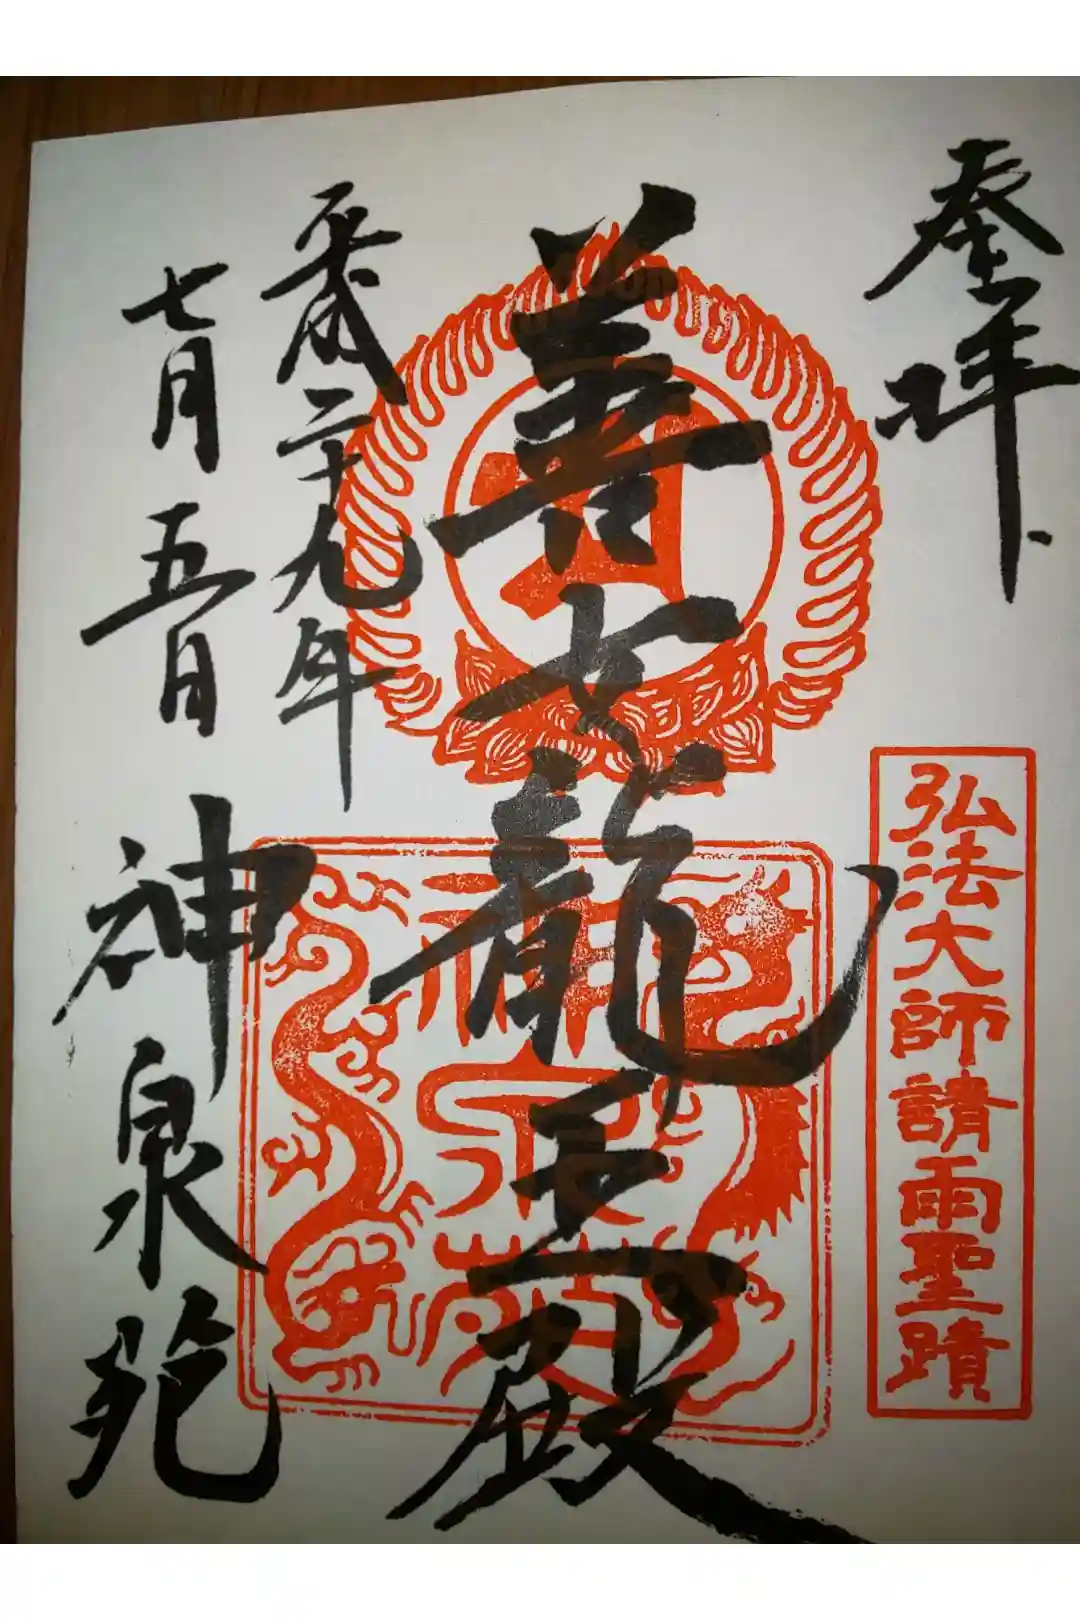 奉拝
弘法大師請雨聖蹟
善女龍王殿
平成二十九年
七月五日
神泉苑
神泉苑